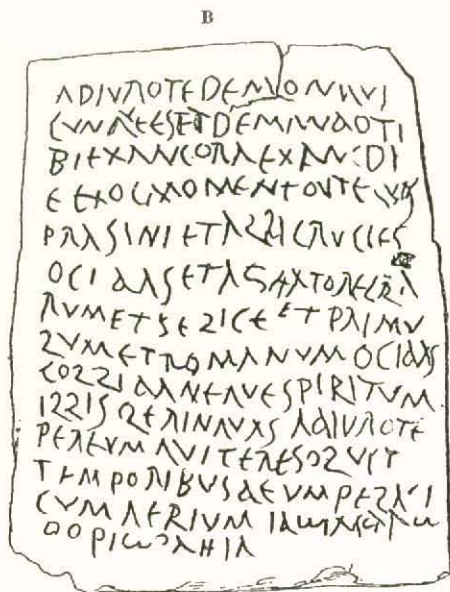 B
ADIVRO TE DEMON QVI
CVNQVE ES ET DEMANDO TI
BI EX ANC ORA EX ANC DI
E EX OC MOMENTO VT EQVOS
PRASINI ET ALBI CRVCIES
OCIDAS ET AGITATORE CLA
RVM ET FELICE ET PRIMV
LVM ET ROMANVM OCIDAS
COLLIDA NEQVE SPIRITVM
ILLIS LERINQVAS ADIVRO TE
PER EVM QVI TE RESOLVIT
TEMPORIBVS DEVM PELAGI
CVM AERIVM ΙΑω ΙΑCΔΑω
ΟΟΡΙω ΑΗΙΑ